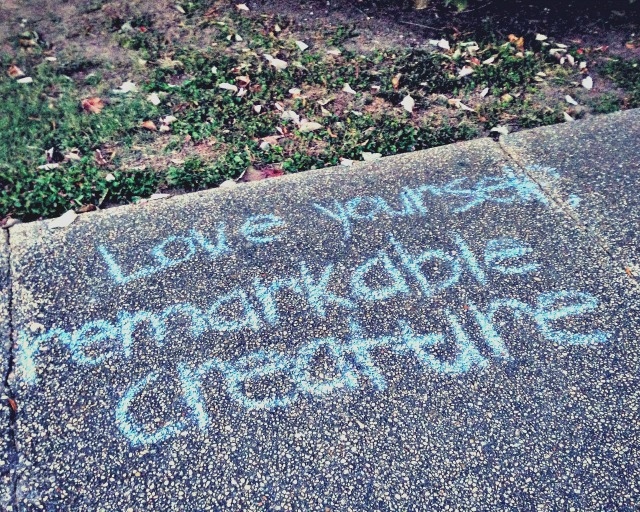 Love yourself,
remarkable
creature